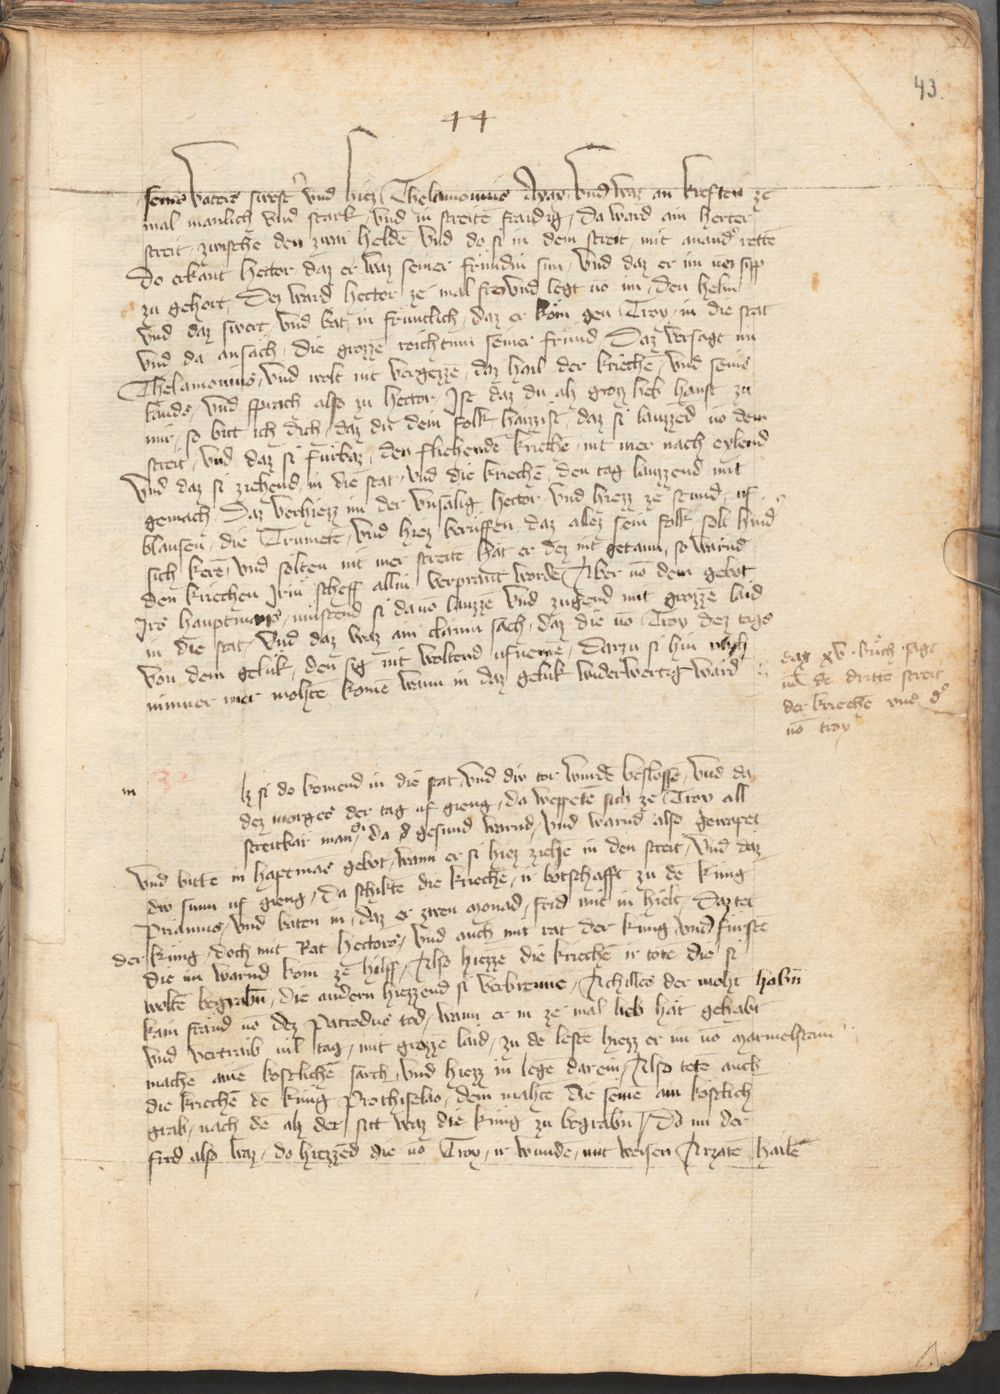 43.
44
seines vaters swester vnd hiez Thelamonius Ayax vnd waz an kreften ze
mal manlich vnd stark, vnd in streitē fraidig, Da ward ain herter
streit zwischē den zwai heldē, vnd do si in dem streit mit anand' rettē
Do erkānt hector daz er waz seiner frūndin sun, vnd daz er im
zu gehort, Dez ward hector ze mal fro vnd legt vō im den helm
vnd daz swert, vnd bat in frūntlich, daz er kōm gen Troy in die stat
vnd da ansāch, die grozze reichtum seiner frūnd Daz versagt im
Thelamonius, vnd wolt nit vergezzē, daz hail der kriechē, vnd seins
lands, vnd sprach also zu hector, Ist daz du alz groz lieb hanst zu
mir, so bitt ich dich, daz du dein folk haizzist, daz si lauzzed vō dem
streit, vnd daz si fūrbaz, den fliehendē kriechē, nit mer nach eylend
vnd daz si ziehend in die stat, vnd die kriechē, den tag lauzzend mit
gemach, Daz verhiezz im der vnsalig hector vnd hiezz ze stund, uf
blausen, die Trumetē, vnd hiez berūffen, daz allez sein folk, solt hind
sich kerē, vnd solten nit mer streitē, hāt er dez nit getann, so wārnd
den kriechen Iriu scheff alliu verprānt wordē, Aber vō dem gebot
Irs hauptmans, mūstend si da vō lauzzē vnd zugend mit grozze laid
in die stat, vnd daz waz ain clainiu sach, daz die vō Troy dez tags
von dem gelūk, den sig nit woltend ufnemē, Darzu si hin nach
nimmer mer mohtē komē wann in daz gelūk widerwertig ward
daz xv. bůch sagt
vō dē dritte streit
der kriechē vnd d'
vō troy
m
lz si do komend in die stat, vnd diu tor wurdē beslossē, vnd da
dez morgēs der tag uf gieng, da weppetē sich ze Troy all
streitbār man, da d' gesund warnd, vnd warnd also gewapet
vnd bittē ir haptmās gebot, wann er si hiez ziehē in den streit, vnd daz
diu sunn uf gieng, Da schiktē die kriechē, ir botschafft zu dē kūng
Priamus, vnd baten in, daz er zwen monad, frid mit in hielt, Daz tet
der kūng, doch mit Rat hectors, vnd auch mit rat der kūng vnd fūrstē
die im warnd kom ze hilff, Also hiezzē die kriechē ir totē die si
woltē begrabn̄, die andern hiezzend si verbrenne, Achilles der moht habn̄
kain frāūd vō dez Patroclus tod, wann er in ze mal lieb hāt gehabt
vnd vertraib vil tag, mit grozze laid, zu dē lestē hiezz er im vō marmelstain
machē ainē kostlichē sarch, vnd hiezz in legē darein, Also tetē auch
die kriechē dē kūng Prothiselao, dem mahtē die seinē ain kōstlich
grab, nach dē alz der sitt waz die kūng zu begrabn̄, Do nu der
frid also waz, do hiezzēd die vō Troy, ir wundē, mit weisen Arzatē hailē